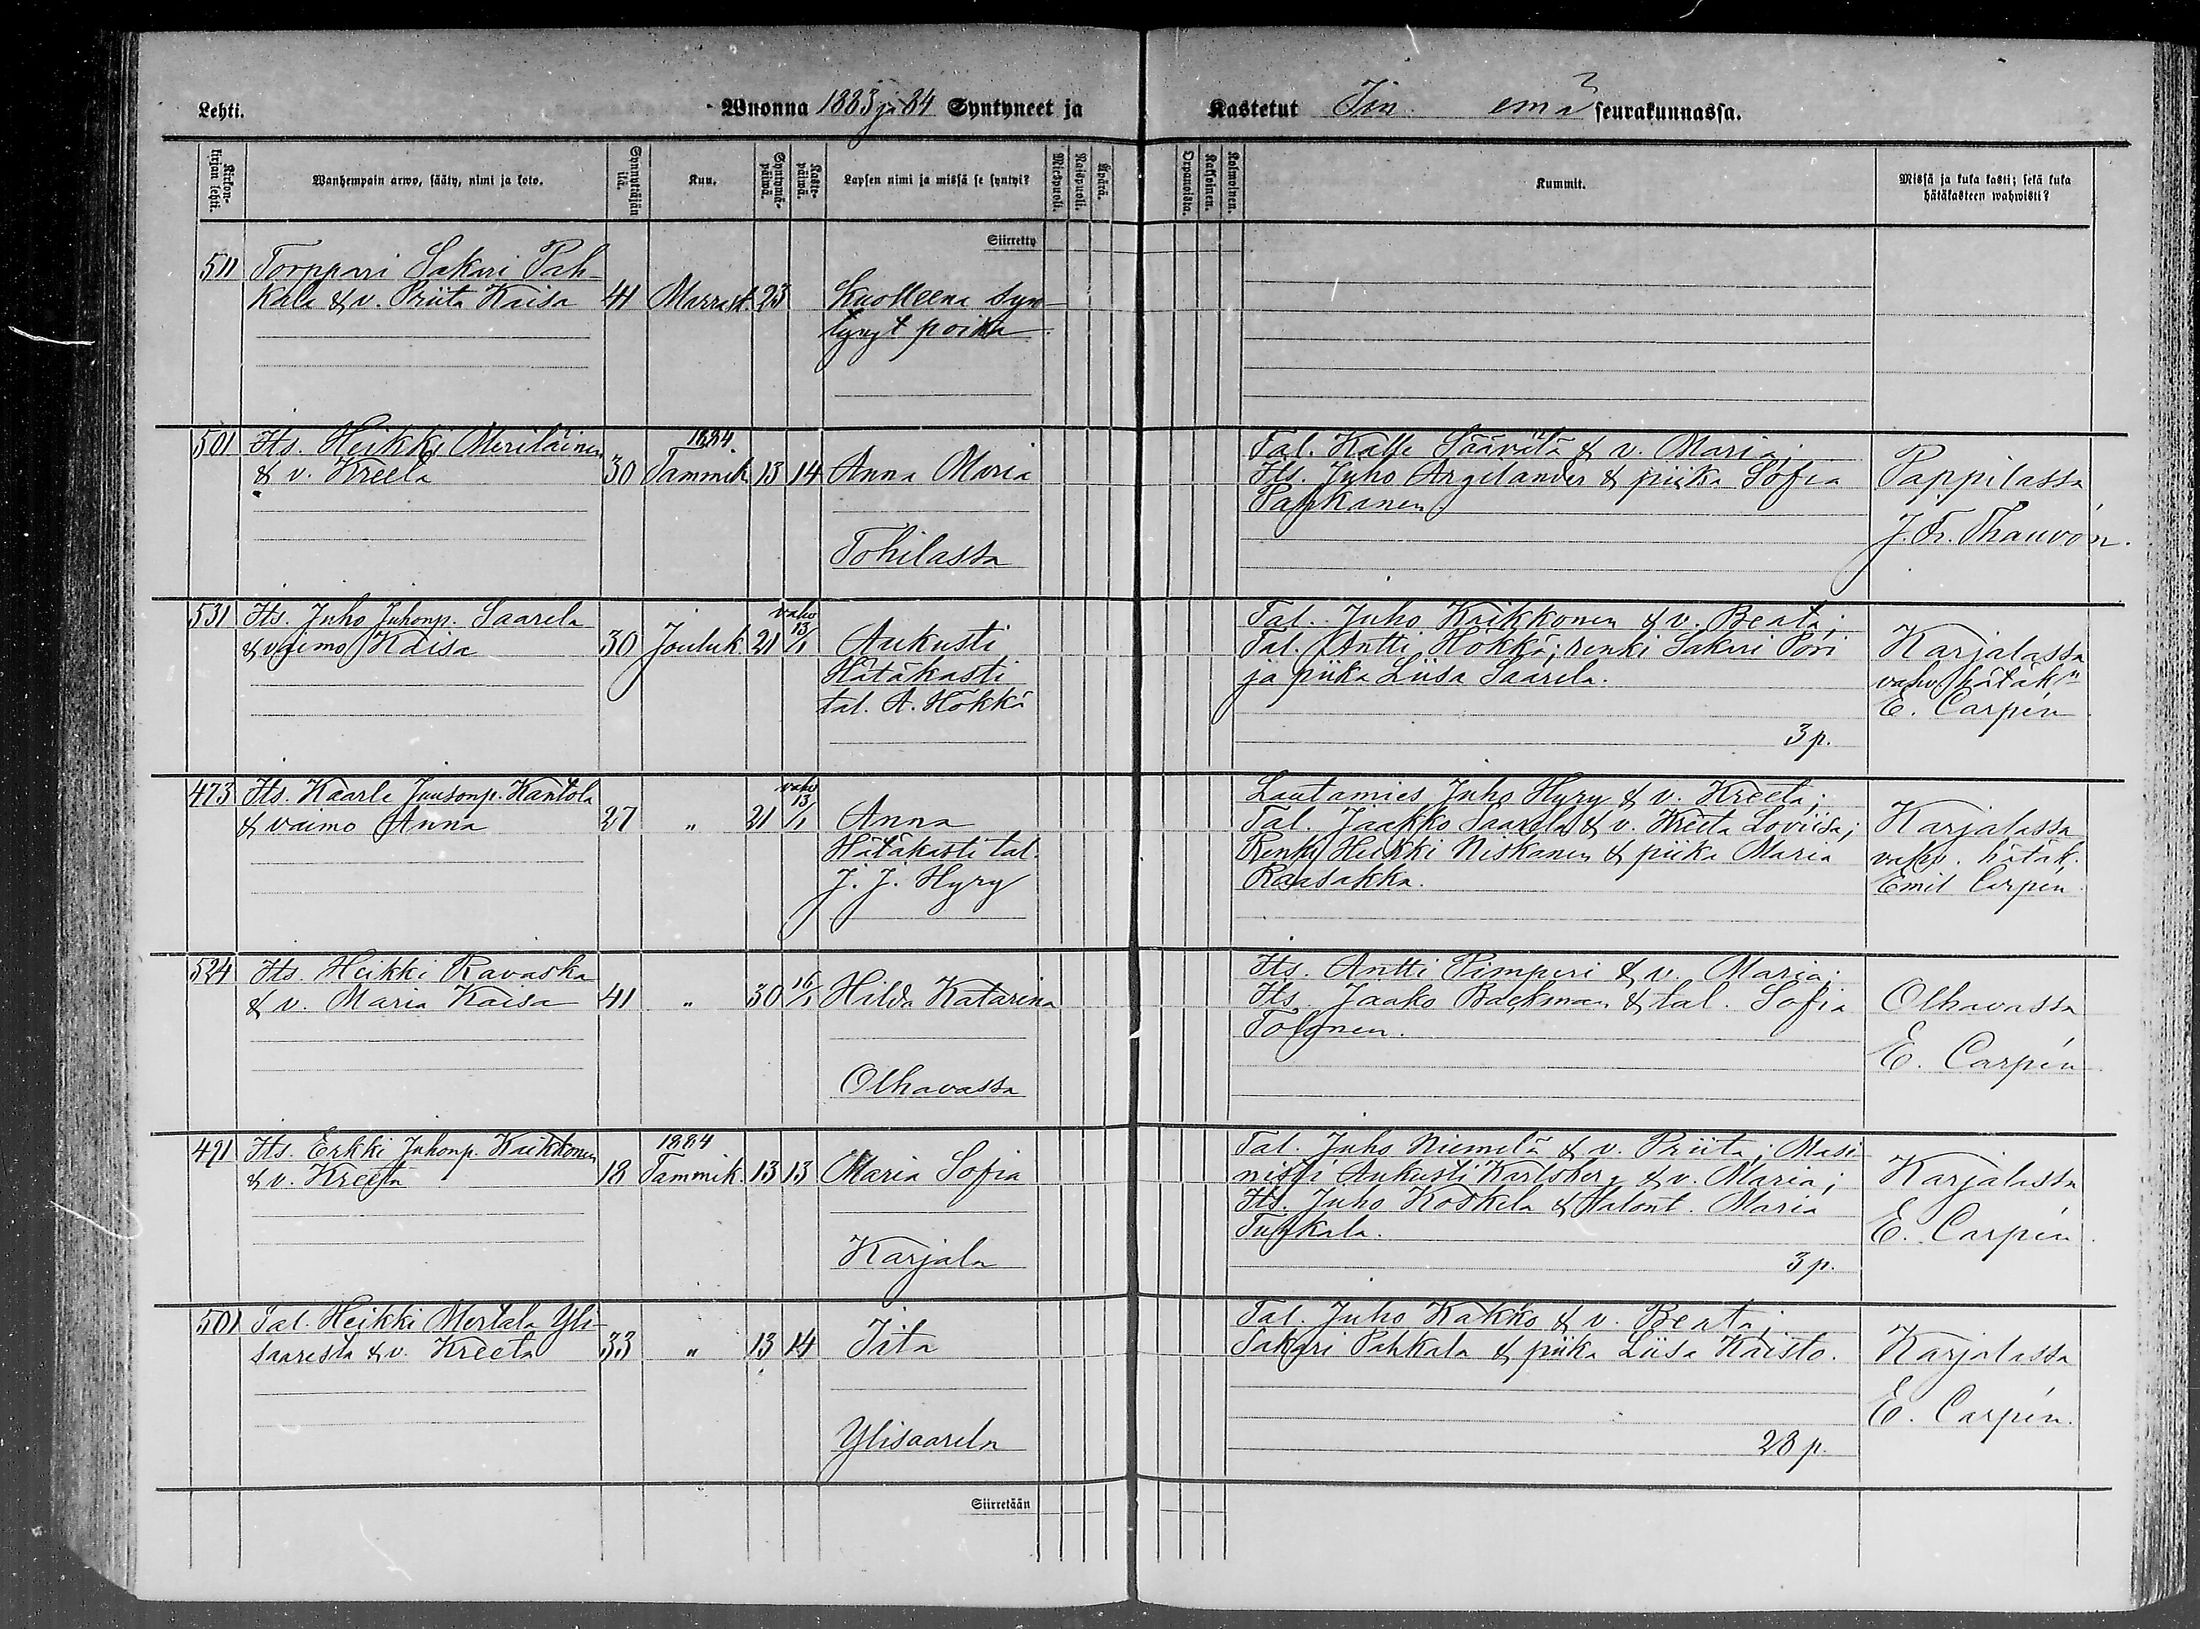 Lehti.
Wuonna 1883 ja 84 Syntyneet ja Kastetut Iin emä seurakunnassa.
Kirkonkirjan lehti.
Wanhempain arwo, sääty, nimi ja koto.
Synnyttäjän ikä.
Kuu.
Syntymäpäiwä.
Kastepäiwä.
Lapsen nimi ja missä se syntyi?
Miespuoli.
Naispuoli.
Äpärä.
Orpanoista.
Kaksoinen.
Kolmoinen.
Kummit.
Missä ja kuka kasti; sekä kuka
hätäkasteen wahwisti?
Siirretty
511 Torppari Sakari Pah-
kala & v. Priita Kaisa 41 Marrask. 23 Kuolleena syn-
tynyt poika
501 Its. Heikki Meriläinen
& v. Kreeta 30 1884. Tammik. 13 14 Anna Maria
Tohilassa
Tal. Kalle Säävälä & v. Maria;
Its. Juho Argelander & piika Sofia
Pahkanen.
Pappilassa
J. Fr. Thauvón.
531 Its. Juho Juhonp. Saarela
& vaimo Kaisa 30 Jouluk. 21 vahv 13/1 Aukusti
Hätäkasti
tal. A. Hökkä
Tal. Juho Kaikkonen & v. Beata;
Tal. Antti Hökkä; renki Sakari Pori
ja piika Liisa Saarela.
3 p.
Karjalassa
vahv. hätäkn
E. Carpén
473 Its. Kaarle Juusonp. Kantola
& vaimo Anna 27 " 21 vahv 13/1 Anna
Hätäkasti tal.
J. J. Hyry
Lautamies Juho Hyry & v. Kreeta;
Tal. Jaakko Saarela & v. Kreeta Loviisa;
Renki Heikki Niskanen & piika Maria
Raasakka.
Karjalassa
vahv. hätäk.
Emil Carpén.
524 Its. Heikki Ravaska
& v. Maria Kaisa 41 " 30 16/1 Hilda Katarina
Olhavassa
Its. Antti Pimperi & v. Maria;
Its. Jaako Backman & tal. Sofia
Tolonen.
Olhavassa
E. Carpén
491 Its. Erkki Juhonp. Kaikkonen
& v. Kreeta 18 1884 Tammik. 13 13 Maria Sofia
Karjala
Tal. Juho Niemelä & v. Priita; Masi-
nisti Aukusti Karlsberg & v. Maria;
Its. Juho Koskela & Halont. Maria
Tuhkala.
3 p.
Karjalassa
E. Carpén.
501 Tal. Heikki Mertala Yli-
saaresta & v. Kreeta 33 " 13 14 Iita
Ylisaarela
Tal. Juho Kakko & v. Beata;
Sakari Pahkala & piika Liisa Kaisto.
28 p.
Karjalassa
E. Carpén.
Siirretään